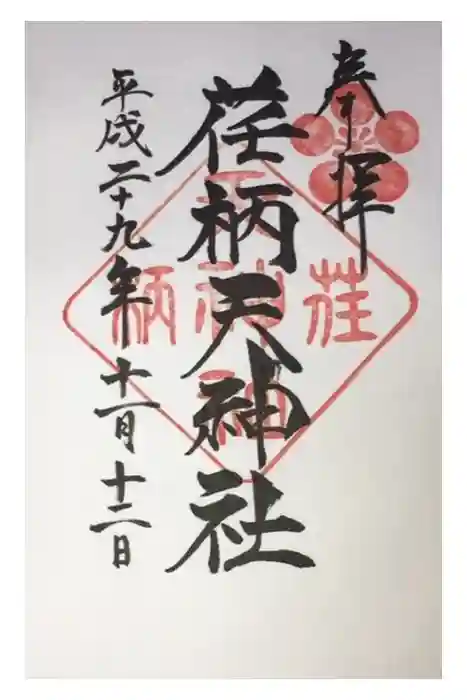 奉拝
荏柄天神社
平成二十九年十一月十二日
荏
天神社
柄